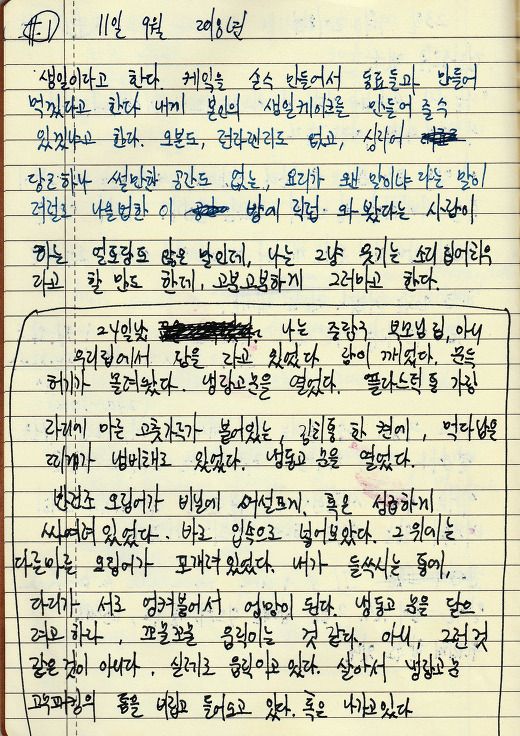 #-1 11일 9월
생일이라고 한다. 케익을 손수 만들어서 동료들과 만들어
먹겠다고 한다 내게 본인의 생일케이크를 만들어 줄수
있겠냐고 한다. 오븐도, 전자렌지도 없고, 심지어
당근하나 썰만한 공간도 없는, 요리가 왠 말이냐 라는 말이
저절로 나올법한 이 방에 직접 와 봤다는 사람이
하는 얼토당토 않은 말인데, 나는 그냥 웃기는 소리 집어치우
라고 할 만도 한데, 고분고분하게 그러마고 한다.
24일낮 나는 중랑구 부모님 집, 아니
우리집에서 잠을 자고 있었다 잠이 깨었다. 문득
허기가 몰려왔다. 냉장고문을 열었다. 플라스틱 통 가장
자리에 마른 고춧가루가 붙어있는, 김치통 한 켠에, 먹다남은
찌개가 냄비채로 있었다. 냉동고 문을 열었다.
반건조 오징어가 비닐에 어설프게, 혹은 성급하게
싸여져 있었다. 바로 입속으로 넣어보았다. 그 위에는
다른마른 오징어가 포개져있었다. 내가 들쑤시는 통에,
다리가 서로 엉켜붙어서 엉망이 된다. 냉동고 문을 닫으
려고 하자, 꼬물꼬물 움직이는 것 같다. 아니, 그런것
같은것이 아니다. 실제로 움직이고 있다. 살아서 냉장고문
고무파킹의 틈을 비집고 들어오고 있다. 혹은 나가고있다